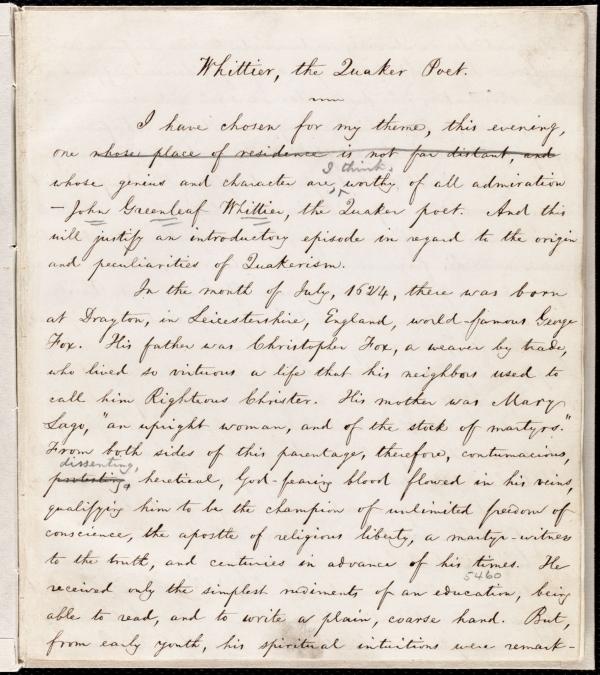 Whittier, the Quaker Poet.
I have chosen for my theme, this evening,
one whose place of residence is not far distant, and
I think,
whose genius and character are, worthy of all admiration
– John Greenleaf Whittier, the Quaker poet. And this
will justify an introductory episode in regard to the origin
and peculiarities of Quakerism.
In the month of July, 1624, there was born
at Drayton, in Leicestershire, England, world-famous George
Fox. His father was Christopher Fox, a weaver by trade,
who lived so virtuous a life that his neighbors used to
call him Righteous Christer. His mother was Mary
Lago, "an upright woman, and of the stock of martyrs."
From both sides of this parentage, therefore, contumacious,
dissenting,
protesting, heretical, God-fearing blood flowed in his veins,
qualifying him to be the champion of unlimited freedom of
conscience, the apostle of religious liberty, a martyr-witness
to the truth, and centuries in advance of his times. He
5460
received only the simplest rudiments of an education, being
able to read, and to write a plain, coarse hand. But,
from early youth, his spiritual intuitions were remark-